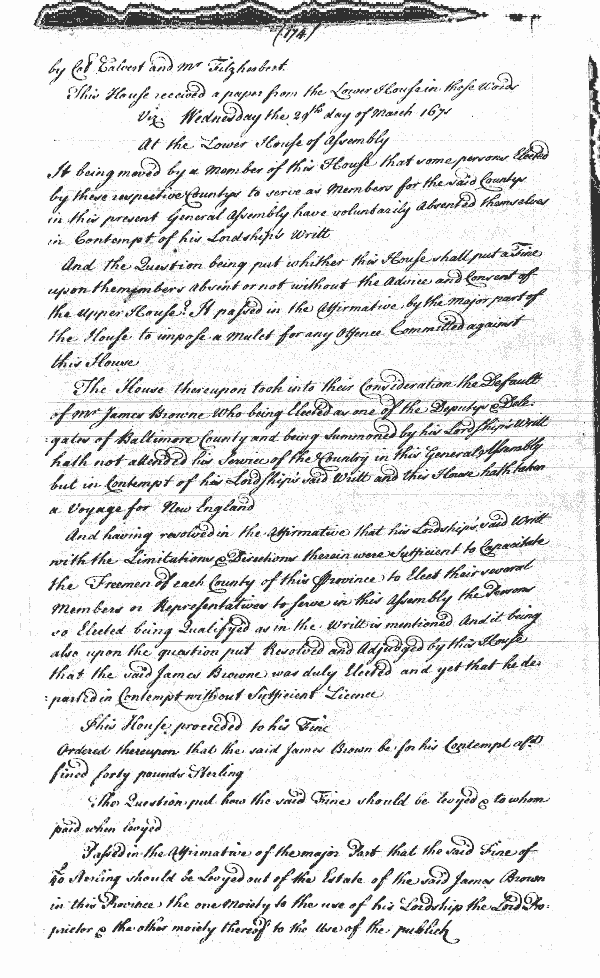 (174)
by Coll Calvert and Mr Fitzherbert.
This House received a paper from the Lower House in those Words
Viz. Wednesday the 29th day of March 1671
At the Lower House of Assembly
It being moved by a Member of this House that some persons Elected
by these respective Countys to serve as Members for the said Countys
in this present General Assembly have voluntarily Absented themselves
in Contempt of his Lordship's Writt
And the Question being put whether this House shall put a Fine
upon the members absent or not without the Advice and Consent of
the Upper House? It passed in the Affirmative by the Major part of
the House to impose a Mulct for any Offence Committed against
this House
The House thereupon took into their Consideration the Default
of Mr James Browne Who being Elected as one of the Deputys & Dele-
=gates of Baltimore County and being Summoned by his Lordship's Writt
hath not attended his Service of the Country in this General Assembly
but in Contempt of his Lordships said Writt and this House hath taken
a Voyage for New England
And having resolved in the Affirmative that his Lordship's said Writt
with the Limitations & Directions therein were Sufficient to Capacitate
the Freemen of each County of this Province to Elect their several
Members or Representatives to Serve in this Assembly the Persons
so Elected being Qualifyed as in the Writt is mentioned And it being
also upon the question put Resolved and Adjudged by this House
that the said James Browne was duly Elected and yet that he de-
=parted in Contempt without Sufficient Licence
This House proceeded to his Fine
Ordered thereupon that the said James Brown be for his Contempt afsd
fined forty pounds Sterling
The Question put how the said Fine should be levyed & to whom
paid when levyed
Passed in the Affirmative of the major Part that the said Fine of
£40 Sterling should be Levyed out of the Estate of the said James Brown
in this Province the one Moiety to the use of his Lordship the Lord Pro-
prietor & the other moiety thereof to the Use of the publick